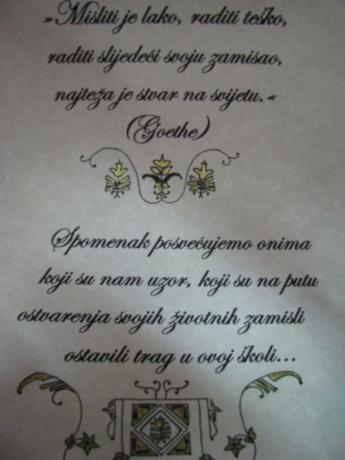 »Misliti je lako, raditi teško,
raditi slijedeći svoju zamisao,
najteža je stvar na svijetu.«
(Goethe)
Spomenak posvećujemo onima
koji su nam uzor, koji su na putu
ostvarenja svojih životnih zamisli
ostavili trag u ovoj školi...